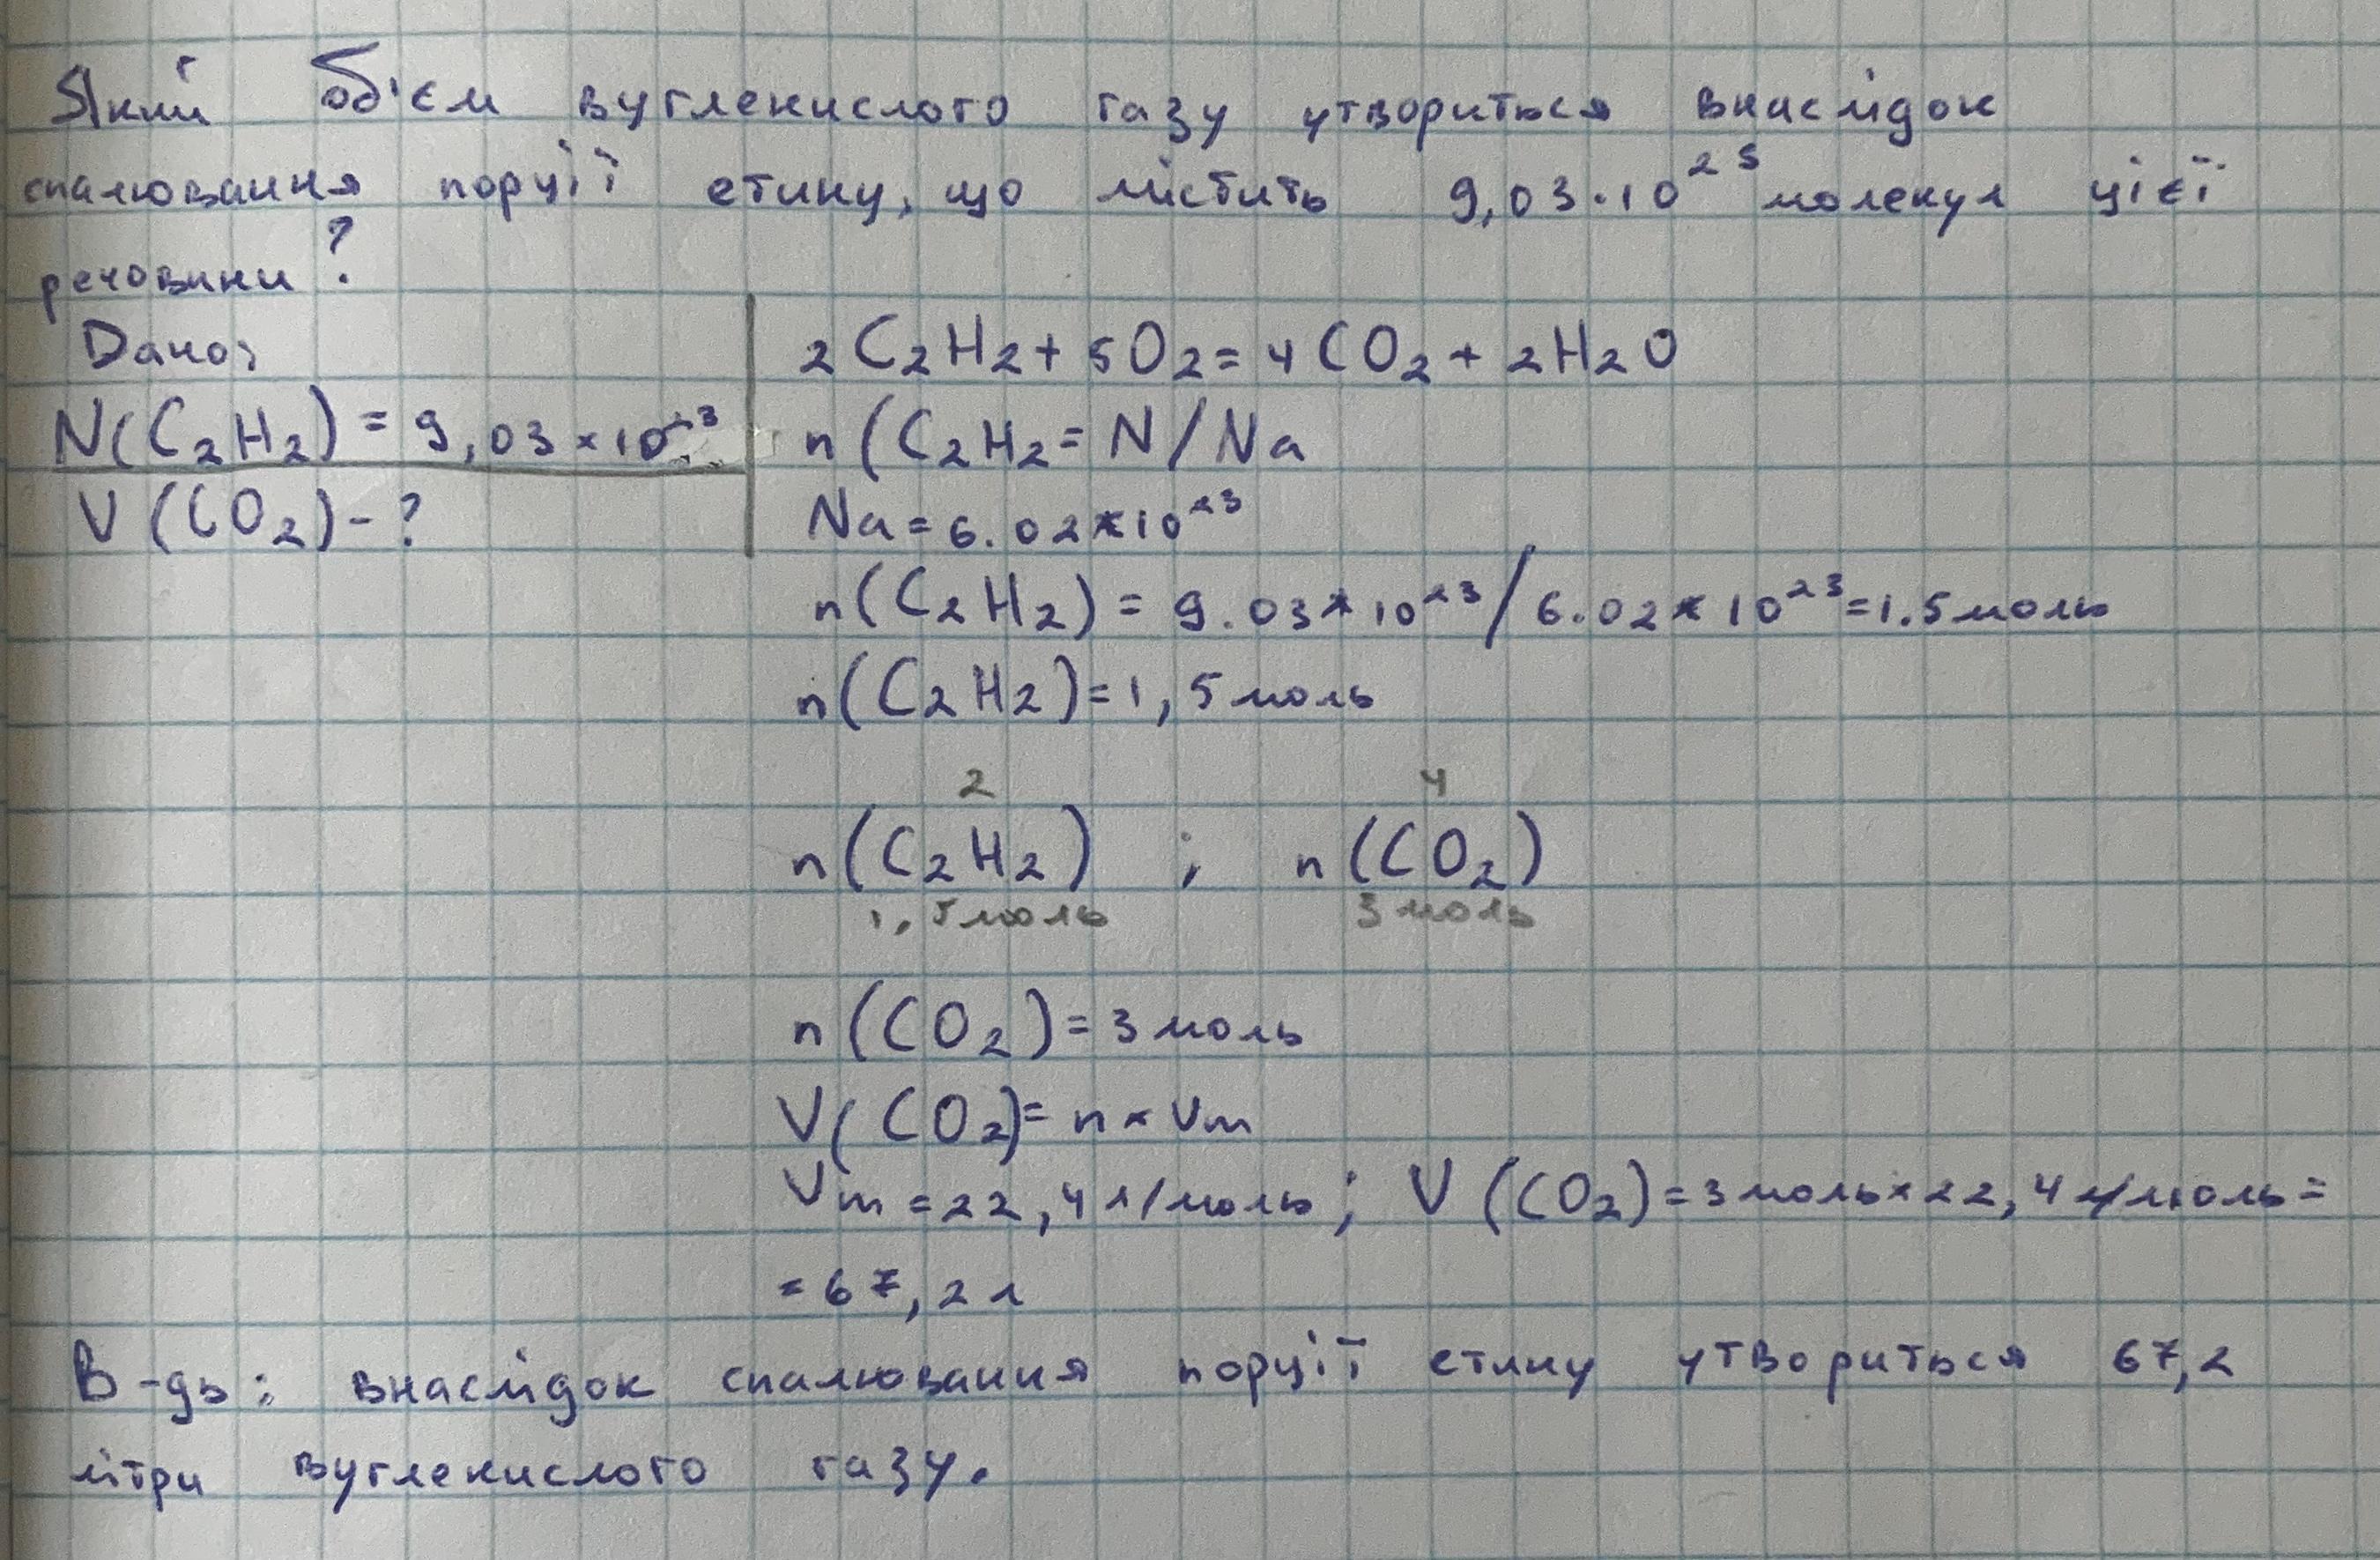 Який об'єм вуглекислого газу утвориться внаслідок
спалювання порції етину, що містить 9,03·10²³ молекул цієї
речовини?
Дано:
N(C₂H₂) = 9,03×10²³
V(CO₂)-?
2C₂H₂+5O₂=4CO₂+2H₂O
n(C₂H₂=N/Na
Na=6.02*10²³
n(C₂H₂)=9.03*10²³/6.02*10²³=1.5моль
n(C₂H₂)=1,5моль
2 4
n(C₂H₂) ; n(CO₂)
1,5моль 3моль
n(CO₂)=3моль
V(CO₂)=n×Vm
Vm=22,4л/моль; V(CO₂)=3моль×22,4л/моль=
=67,2л
В-дь: внаслідок спалювання порції етину утвориться 67,2
літри вуглекислого газу.